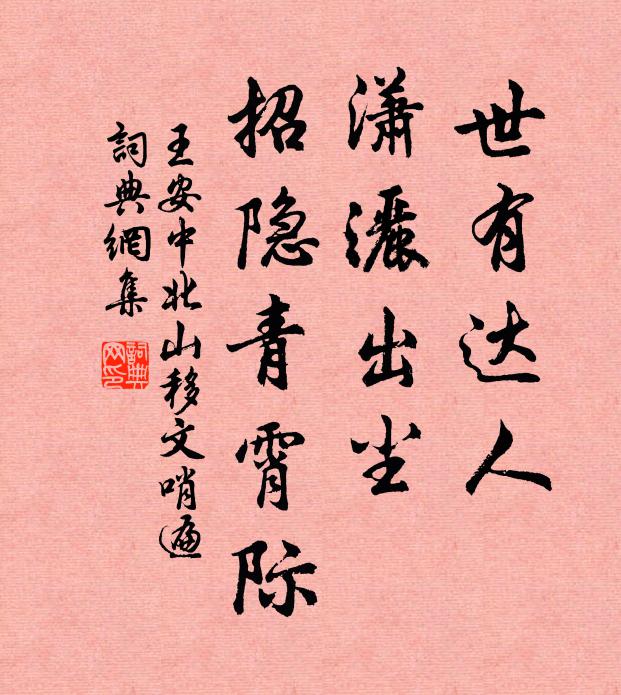 世有达人
潇灑出尘
招隐青霄际
王安中北山移文哨遍
詞典網集
詞典
网印